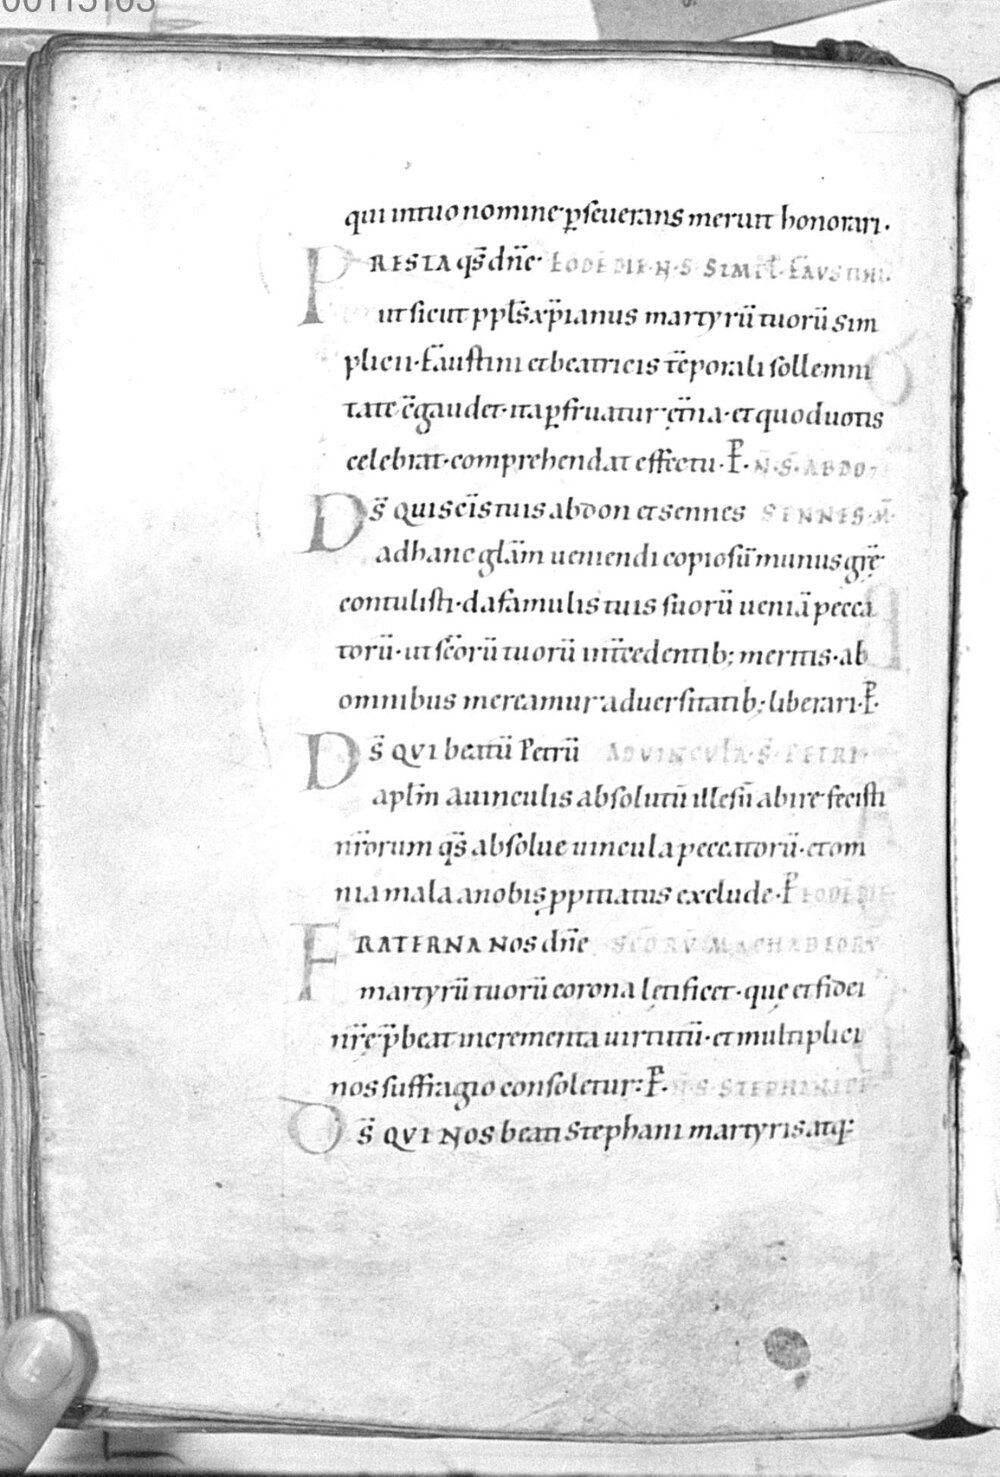 00115103
qui in tuo nomine p̱seuerans meruit honorari.
PRESTA qs̄ dñe· EODĒ DIE·N·S SIMPL̄·FAVSTINI.
ut sicut ppl̄s xp̄ianus martyrū tuorū sim
plicii·Faustini et beatricis tēporali sollemni
tate cōgaudet·ita p̱fruatur ęt̄na·et quod uotis
celebrat·comprehendat effectu·P̄· N̄·S̄·ABDO·
Ds̄ QUI sc̄is tuis abdon et sennes SENNES·M̄·
ad hanc glām ueniendi copiosū munus grę̄
contulisti·da famulis tuis suorū ueniā pecca
torū·ut sc̄orū tuorū int̄cedentib; meritis·ab
omnibus mereamur aduersitatib; liberari·P̄·
Ds̄ QVI beatū Petrū AD VINCVLA·S̄·PETRI·
apl̄m a uinculis absolutū illesū abire fecisti
nr̄orum qs̄ absolue uincula peccatorū·et om
nia mala a nobis ppitiatus exclude·P̄ EODĒ DIE·
FRATERNA NOS dñe SCŌRV̄ MACHABEORV̄
martyrū tuorū corona lętificet·quę et fidei
nr̄ę p̄beat incrementa uirtutū·et multiplici
nos suffragio consoletur:P̄· N̄·S·STEPHANI PP̄·
Ds̄ QVI NOS beati Stephani martyris atq;